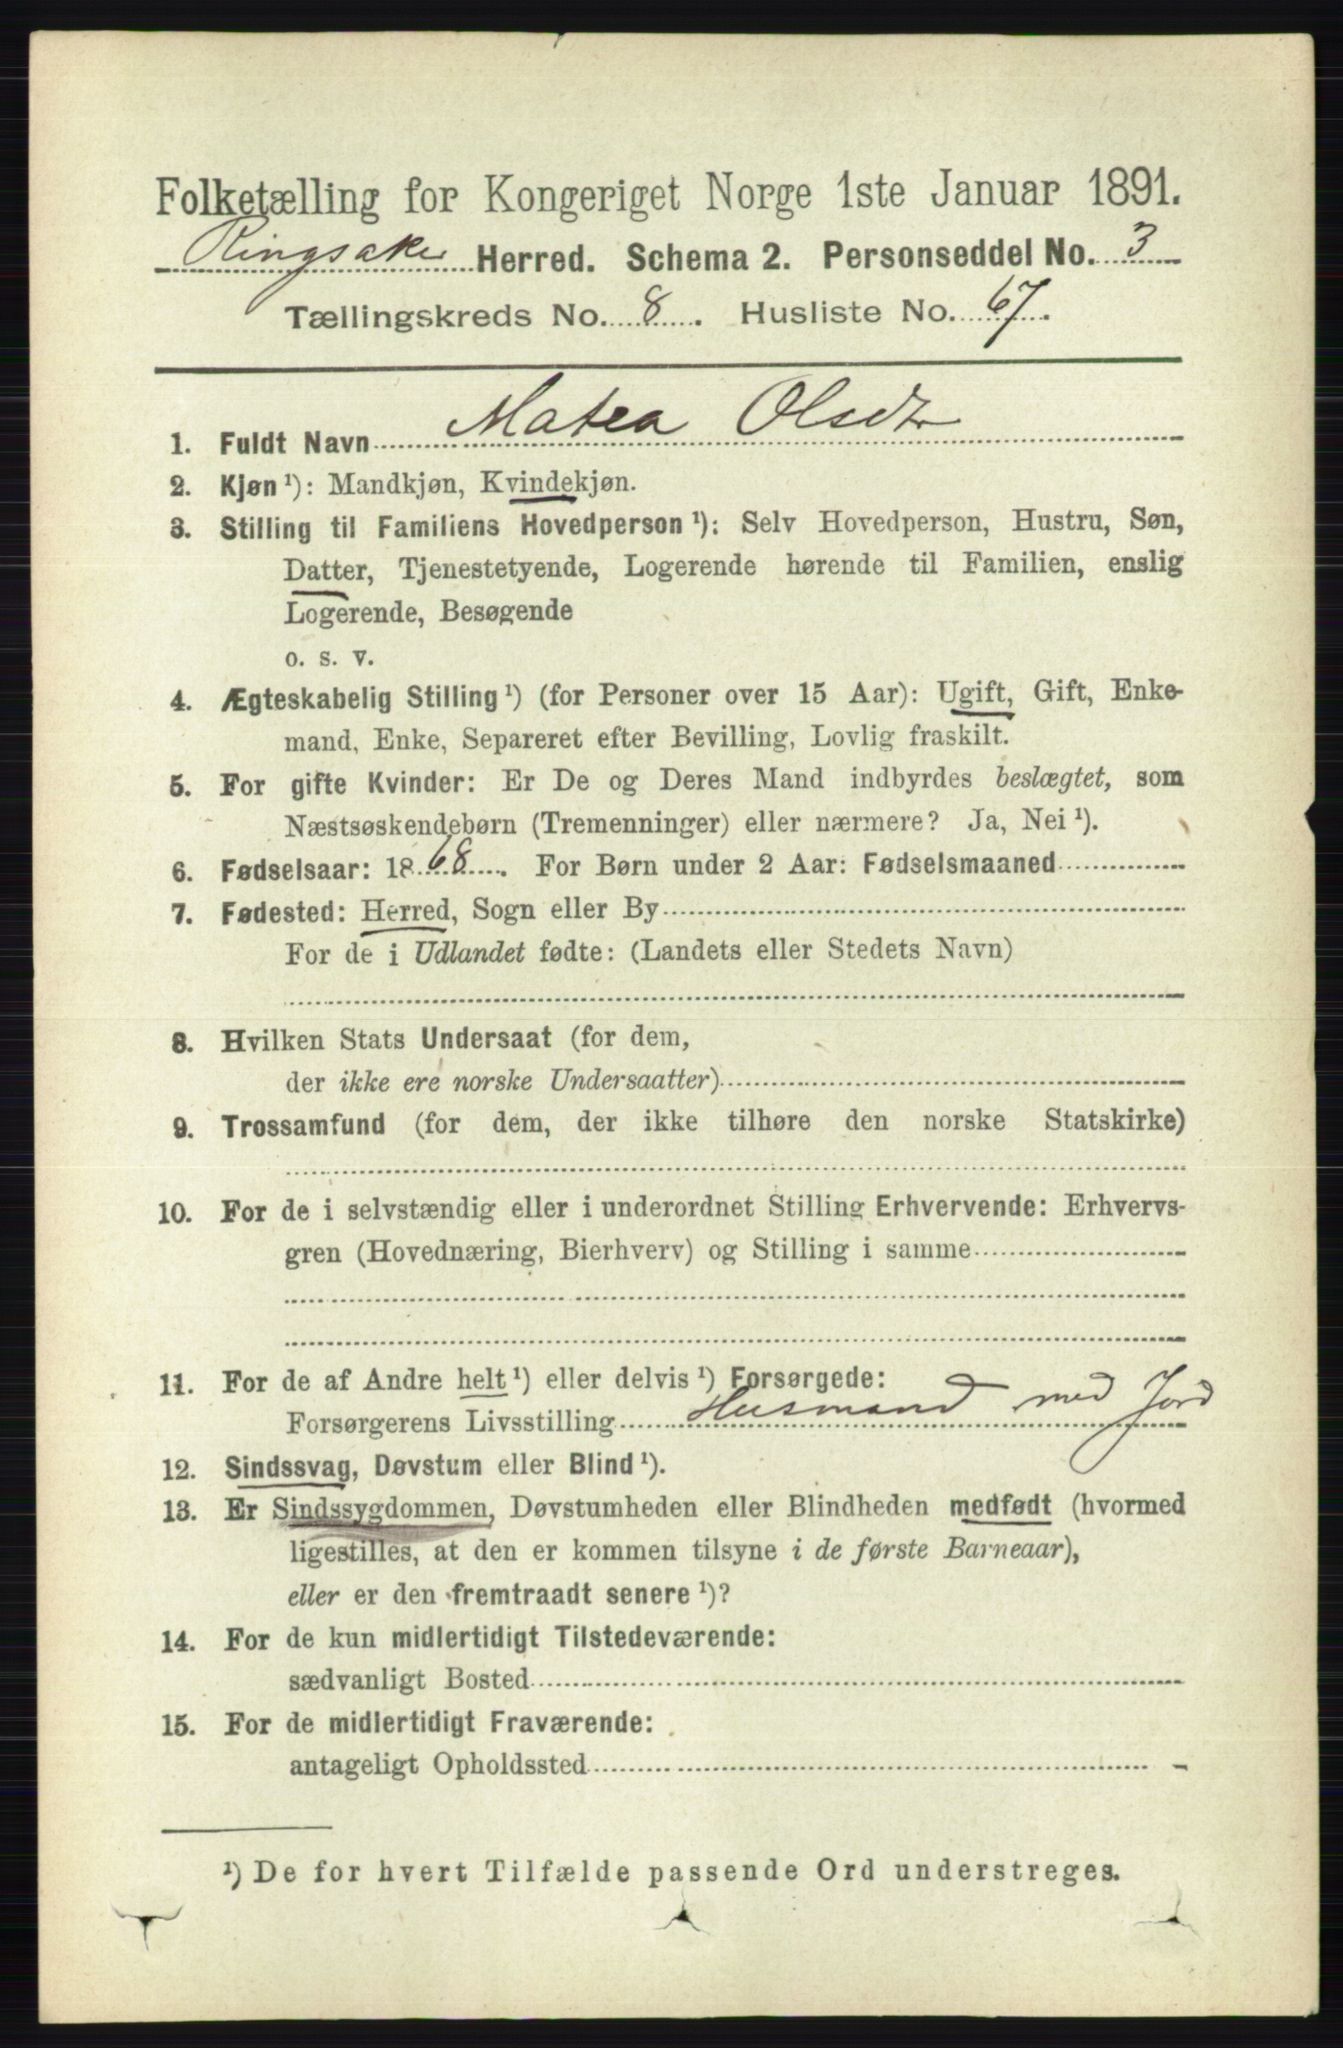 Folketælling for Kongeriget Norge 1ste Januar 1891.
Ringsaker Herred. Schema 2. Personseddel No. 3
Tællingskreds No. 8. Husliste No. 67.
1. Fuldt Navn Matea Olsdtr
2. Kjøn ¹): Mandkjøn, Kvindekjøn.
3. Stilling til Familiens Hovedperson ¹): Selv Hovedperson, Hustru, Søn,
Datter, Tjenestetyende, Logerende hørende til Familien, enslig
Logerende, Besøgende
o. s. v.
4. Ægteskabelig Stilling ¹) (for Personer over 15 Aar): Ugift, Gift, Enke-
mand, Enke, Separeret efter Bevilling, Lovlig fraskilt.
5. For gifte Kvinder: Er De og Deres Mand indbyrdes beslægtet, som
Næstsøskendebørn (Tremenninger) eller nærmere? Ja, Nei ¹).
6. Fødselsaar: 1868. For Børn under 2 Aar: Fødselsmaaned
7. Fødested: Herred, Sogn eller By
For de i Udlandet fødte: (Landets eller Stedets Navn)
8. Hvilken Stats Undersaat (for dem,
der ikke ere norske Undersaatter)
9. Trossamfund (for dem, der ikke tilhøre den norske Statskirke)
10. For de i selvstændig eller i underordnet Stilling Erhvervende: Erhvervs-
gren (Hovednæring, Bierhverv) og Stilling i samme
11. For de af Andre helt ¹) eller delvis ¹) Forsørgede:
Forsørgerens Livsstilling Husmand med Jord
12. Sindssvag, Døvstum eller Blind ¹).
13. Er Sindssygdommen, Døvstumheden eller Blindheden medfødt (hvormed
ligestilles, at den er kommen tilsyne i de første Barneaar),
eller er den fremtraadt senere ¹)?
14. For de kun midlertidigt Tilstedeværende:
sædvanligt Bosted
15. For de midlertidigt Fraværende:
antageligt Opholdssted
¹) De for hvert Tilfælde passende Ord understreges.